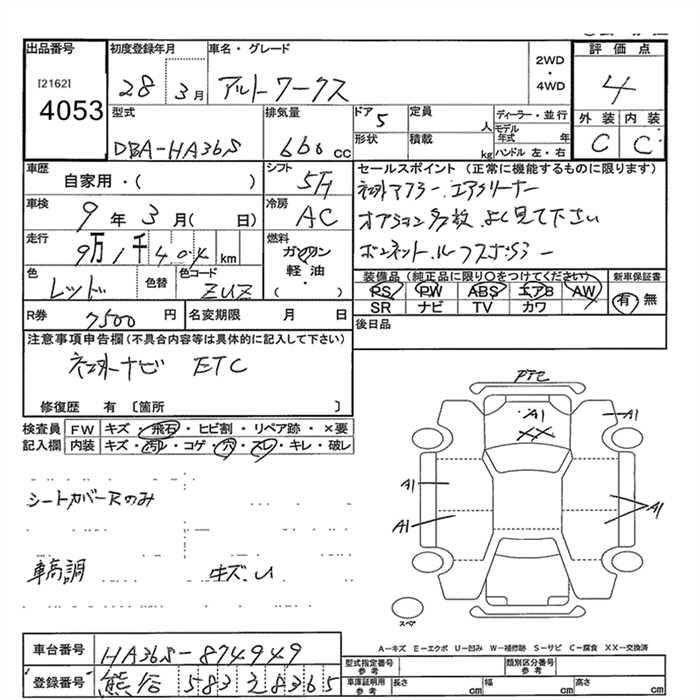 出品番号 初度登録年月 車名・グレード 評価点
[2162] 4053
28 3月 アルトワークス 2WD・4WD 4
外装 内装
C C
型式 排気量 ドア 5 定員 人 ディーラー・並行
DBA-HA36S 660cc 形状 積載 kg モデル年式 年
ハンドル 左・右
車歴 シフト セールスポイント (正常に機能するものに限ります)
自家用・( ) 5F
車検 9年3月( 日) 冷房 AC
オプション多数.よく見て下さい
走行 9万1千404km 燃料 ガソリン 軽油 ( )
色 レッド 色替 色コード ZUZ
装備品(純正品に限り○をつけてください) 新車保証書
PS PW ABS エアB AW 有 無
SR ナビ TV カワ
R券 7500円 名変期限 月 日 後日品
注意事項申告欄(不具合内容等は具体的に記入して下さい)
ナビ ETC
修復歴 有 〔箇所 〕
検査員記入欄 FW キズ・飛石・ヒビ割・リペア跡・×要
内装 キズ・汚れ・コゲ・穴・スレ・キレ・破レ
A1 A1
XX
A1 A1
A1
シートカバーRのみ
車高調 キズ.U
スペア
A-キズ E-エクボ U-凹み W-補修跡 S-サビ C-腐食 XX-交換済
車台番号 HA36S-874949
型式指定番号 参考 類別区分番号 参考
登録番号 熊谷 583 る 8365
車庫証明用 参考 長さ cm 幅 cm 高さ cm